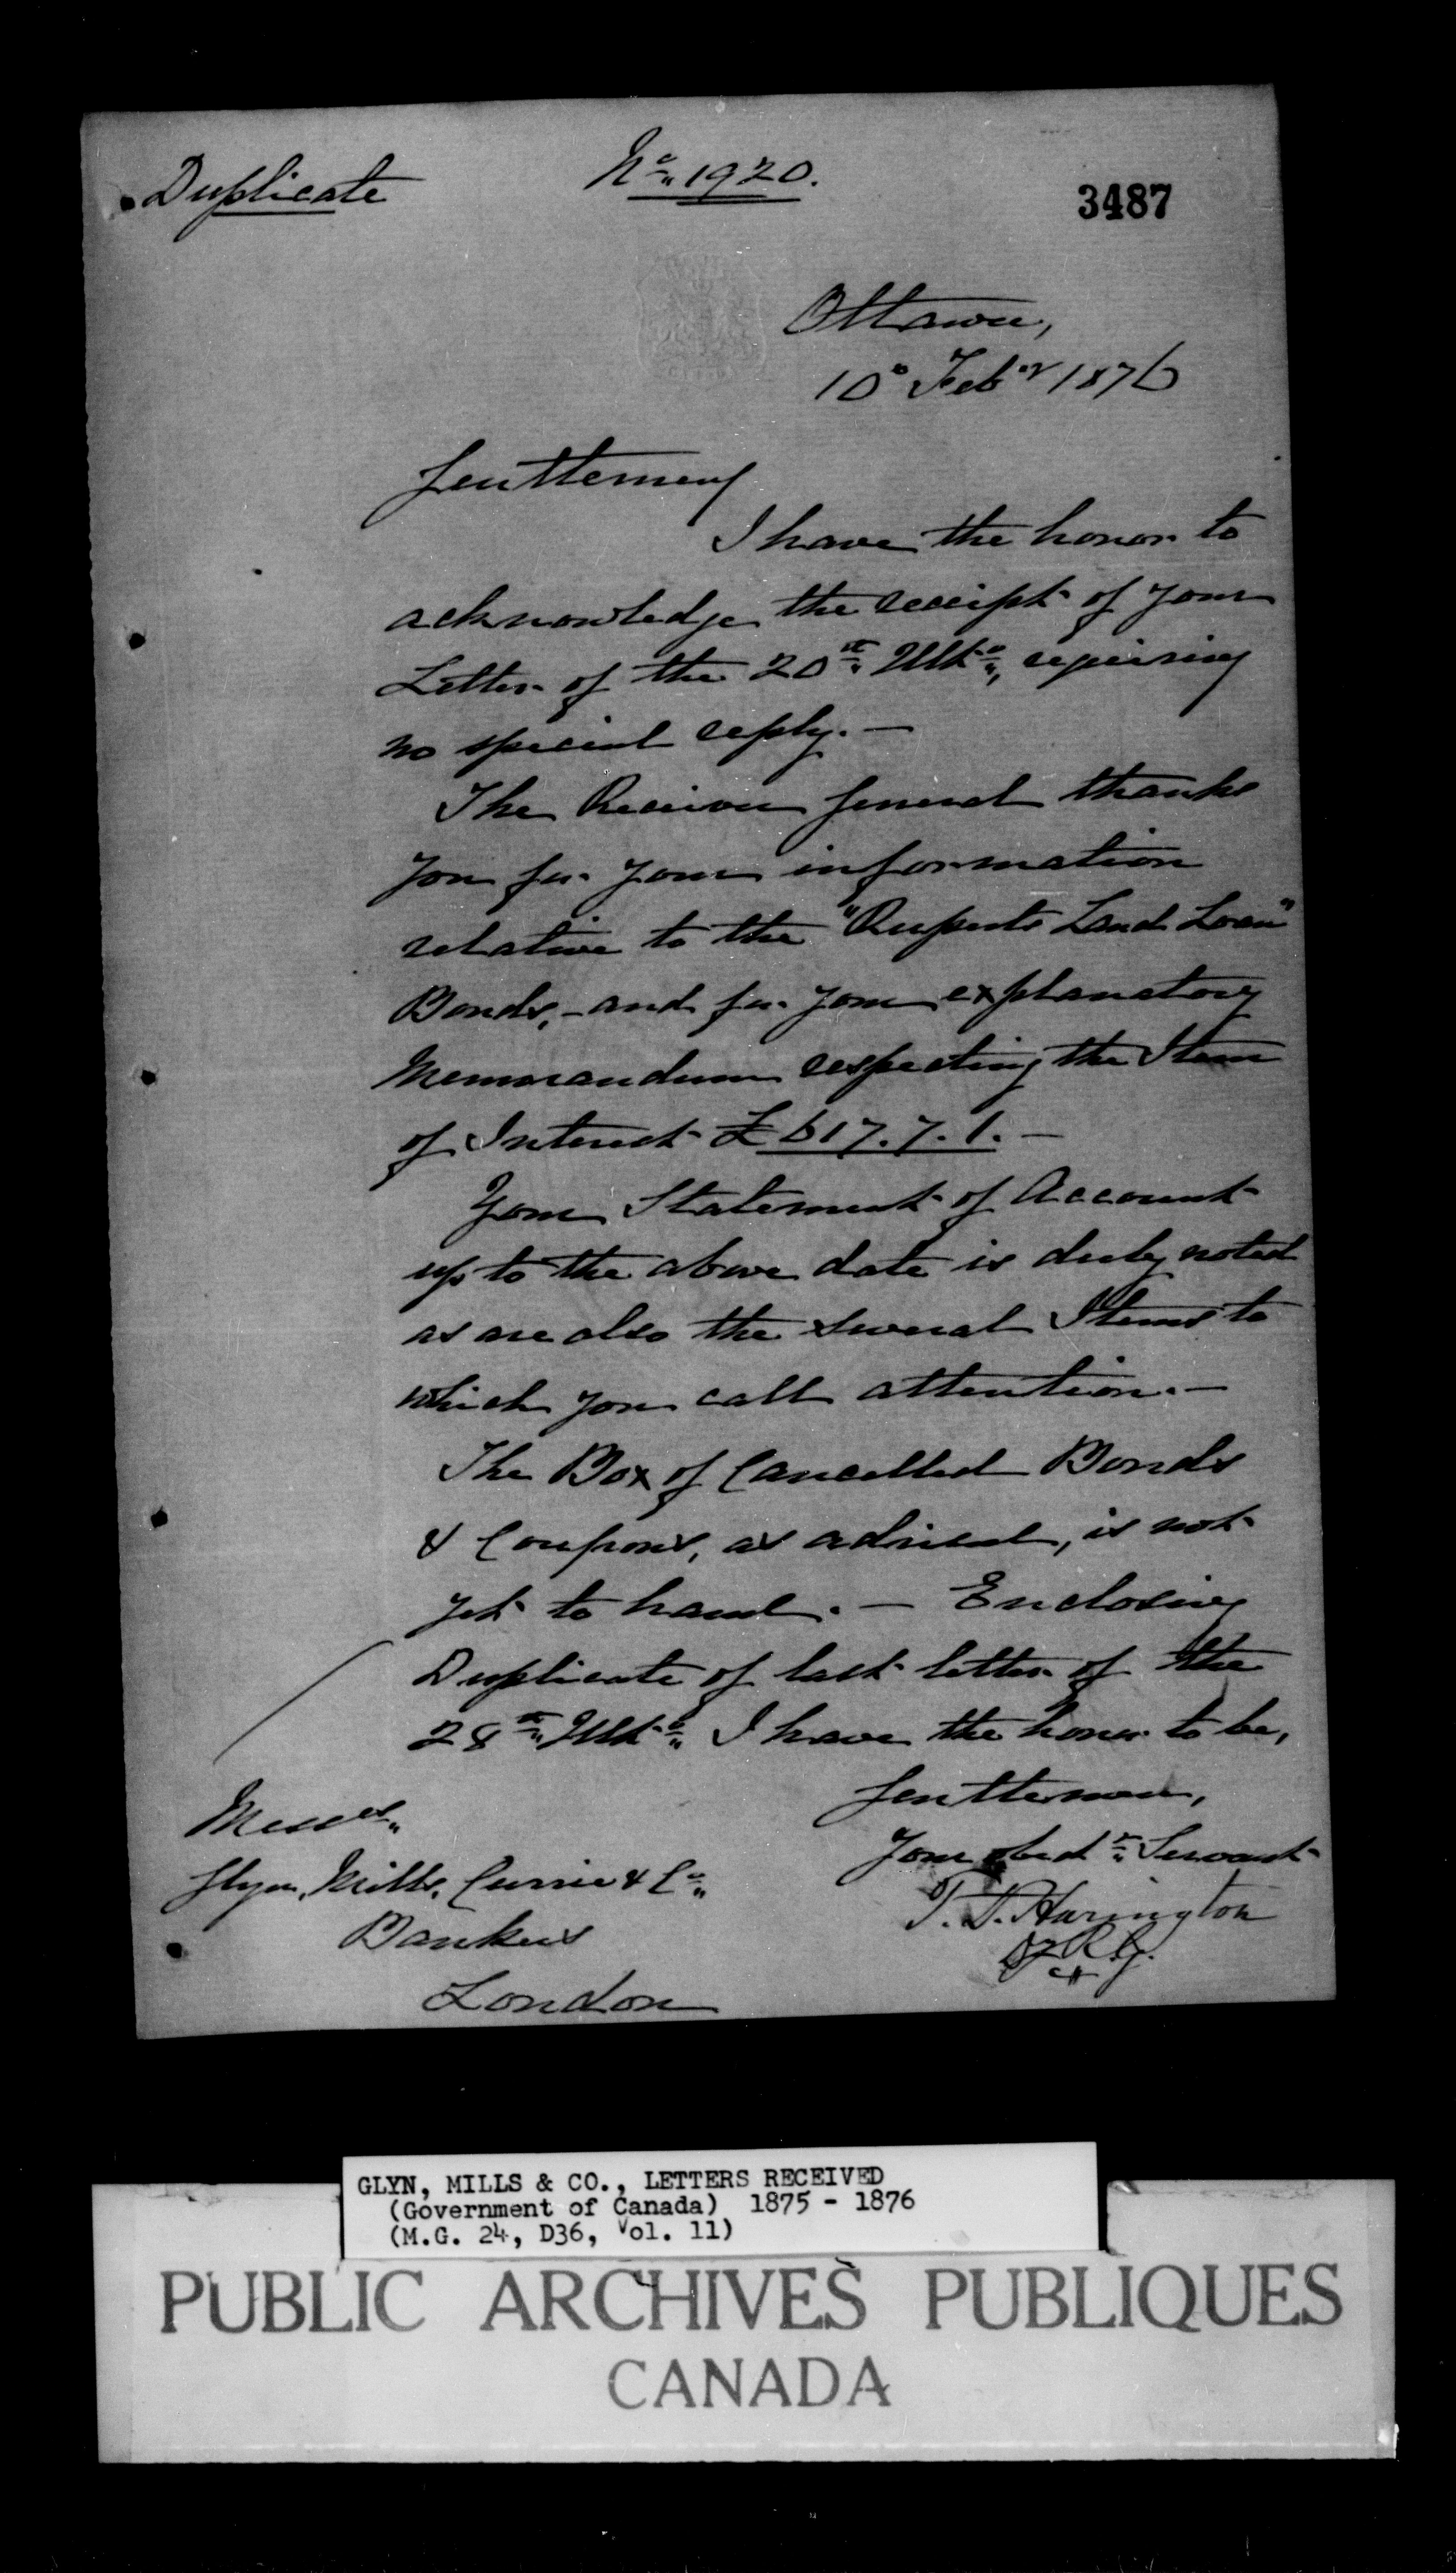 Duplicate
No. 1920.
3487
Ottawa,
10th Feby 1876
Gentlemen
I have the honor to
acknowledge the receipt of your
Letter of the 20th Ulto, requiring
no special reply. —
The Receiver General thanks
you for your information
relative to the "Ruperts Land Loan"
Bonds, - and for your explanatory
Memorandum respecting the Item
of Interest £617.7.1. —
Your Statement of Account
up to the above date is duly noted
as are also the several Items to
which you call attention. —
The Box of Cancelled Bonds
& Coupons, as advised, is not
yet to hand. — Enclosing
Duplicate of last letter of the
28th Ulto I have the honor to be,
Gentlemen,
Your obedt Servant
T. D. Harington
D R. G.
Messrs
Glyn, Mills, Currie & Co
Bankers
London
GLYN, MILLS & CO., LETTERS RECEIVED
(Government of Canada) 1875 - 1876
(M.G. 24, D36, Vol. 11)
PUBLIC ARCHIVES PUBLIQUES
CANADA